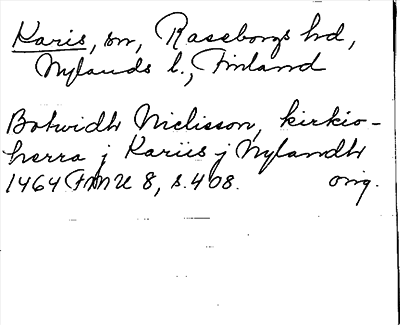 Karis, sn, Raseborgs hd,
Nylands l., Finland
Botwidh Nielisson, kirkio-
herra j Kariis j Nylandh
1464 FMU 8, s. 408. orig.